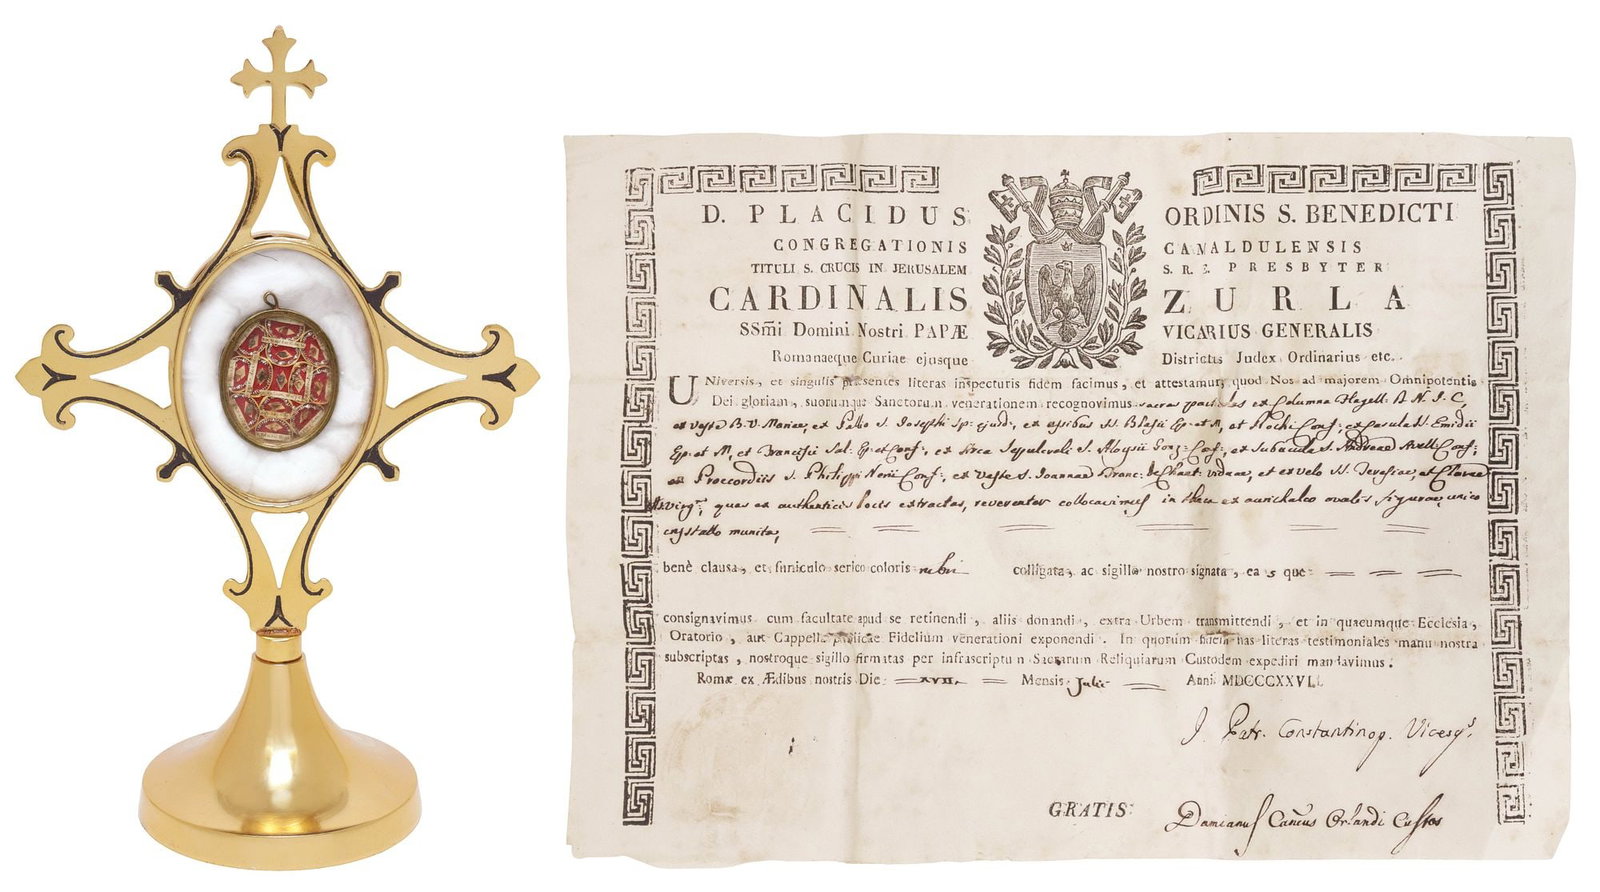 D. PLACIDUS ORDINIS S. BENEDICTI
CONGREGATIONIS CAMALDULENSIS
TITULI S. CRUCIS IN JERUSALEM S. R. E. PRESBYTER
CARDINALIS ZURLA
SSm̃i Domini Nostri PAPÆ VICARIUS GENERALIS
Romanaeque Curiae ejusque Districtus Judex Ordinarius etc.
UNiversis, et singulis praesentes literas inspecturis fidem facimus, et attestamur, quod Nos ad majorem Omnipotentis
Dei gloriam, suorumque Sanctorum venerationem recognovimus sacras particulas ex Columna Flagell: D. N. J. C.,
ex Veste B. V. Mariae, ex Pallio S. Josephi Sp: ejusd:, ex ossibus SS. Blasii Ep: et M, et Rochi Conf:, ex Casula S. Emidii
Ep: et M, et Francisci Sal: Ep: et Conf:, ex Arca Sepulcrali S. Aloysii Gonz: Conf:, ex Subucula S. Andreae Avell: Conf:
ex Praecordiis S. Philippi Nerii Conf:, ex Veste S. Joannae Franc: de Chant: viduae, et ex velo SS. Teresiae, et Clarae
Virg:, quas ex authenticis locis extractas, reverenter collocavimus in theca ex aurichalco ovalis figurae, unico
crystallo munita,
benè clausa, et funiculo serico coloris rubri colligata, ac sigillo nostro signata, eas que
consignavimus cum facultate apud se retinendi, aliis donandi, extra Urbem transmittendi, et in quacumque Ecclesia,
Oratorio, aut Cappella publicae Fidelium venerationi exponendi. In quorum fidem has literas testimoniales manu nostra
subscriptas, nostroque sigillo firmatas per infrascriptum Sacrarum Reliquiarum Custodem expediri mandavimus.
Romæ ex Ædibus nostris Die XVII. Mensis Julii Anni MDCCCXXVII.
J. Patr. Constantinop. Vicesgs.
GRATIS
Damianus Canc̃us Orlandi Custos